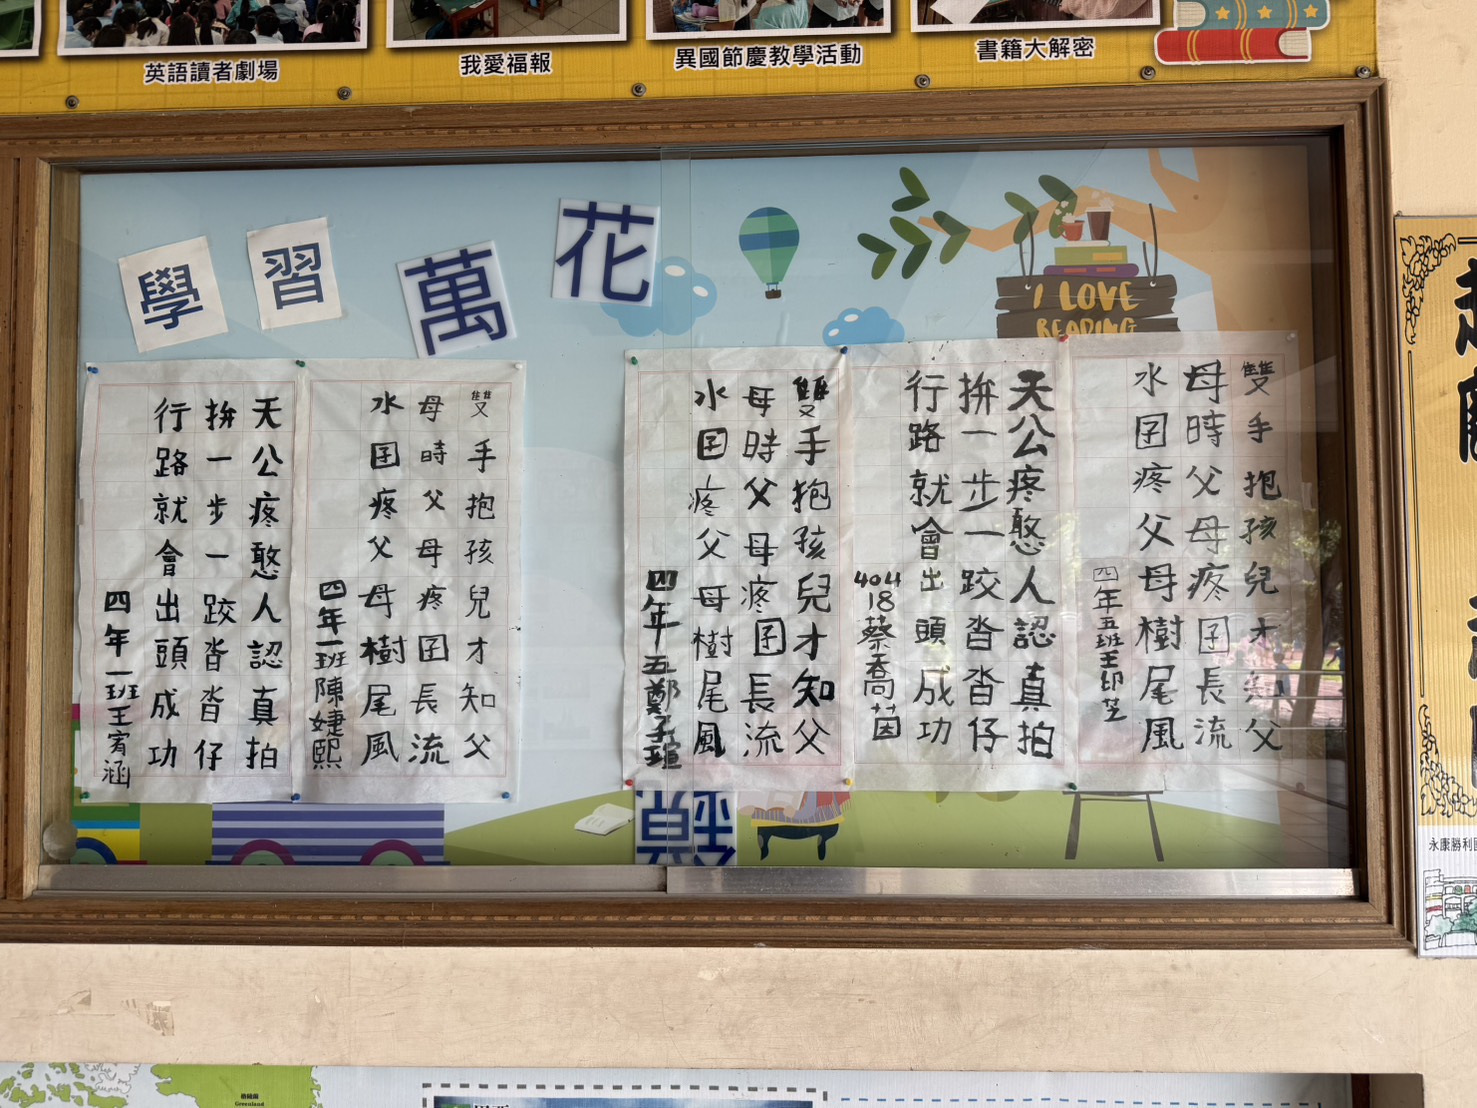 英語讀者劇場
我愛福報
異國節慶教學活動
書籍大解密
學習萬花
I LOVE
READING
雙手抱孩兒才知父
母時父母疼囝長流
水囝疼父母樹尾風
四年五班王印芝
天公疼憨人認真拍
拚一步一跤沓沓仔
行路就會出頭成功
404
18
蔡喬茵
雙手抱孩兒才知父
母時父母疼囝長流
水囝疼父母樹尾風
四年五鄭子瑄
雙手抱孩兒才知父
母時父母疼囝長流
水囝疼父母樹尾風
四年一班陳婕熙
天公疼憨人認真拍
拚一步一跤沓沓仔
行路就會出頭成功
四年一班王宥涵
鏡
永康勝利國
Greenland